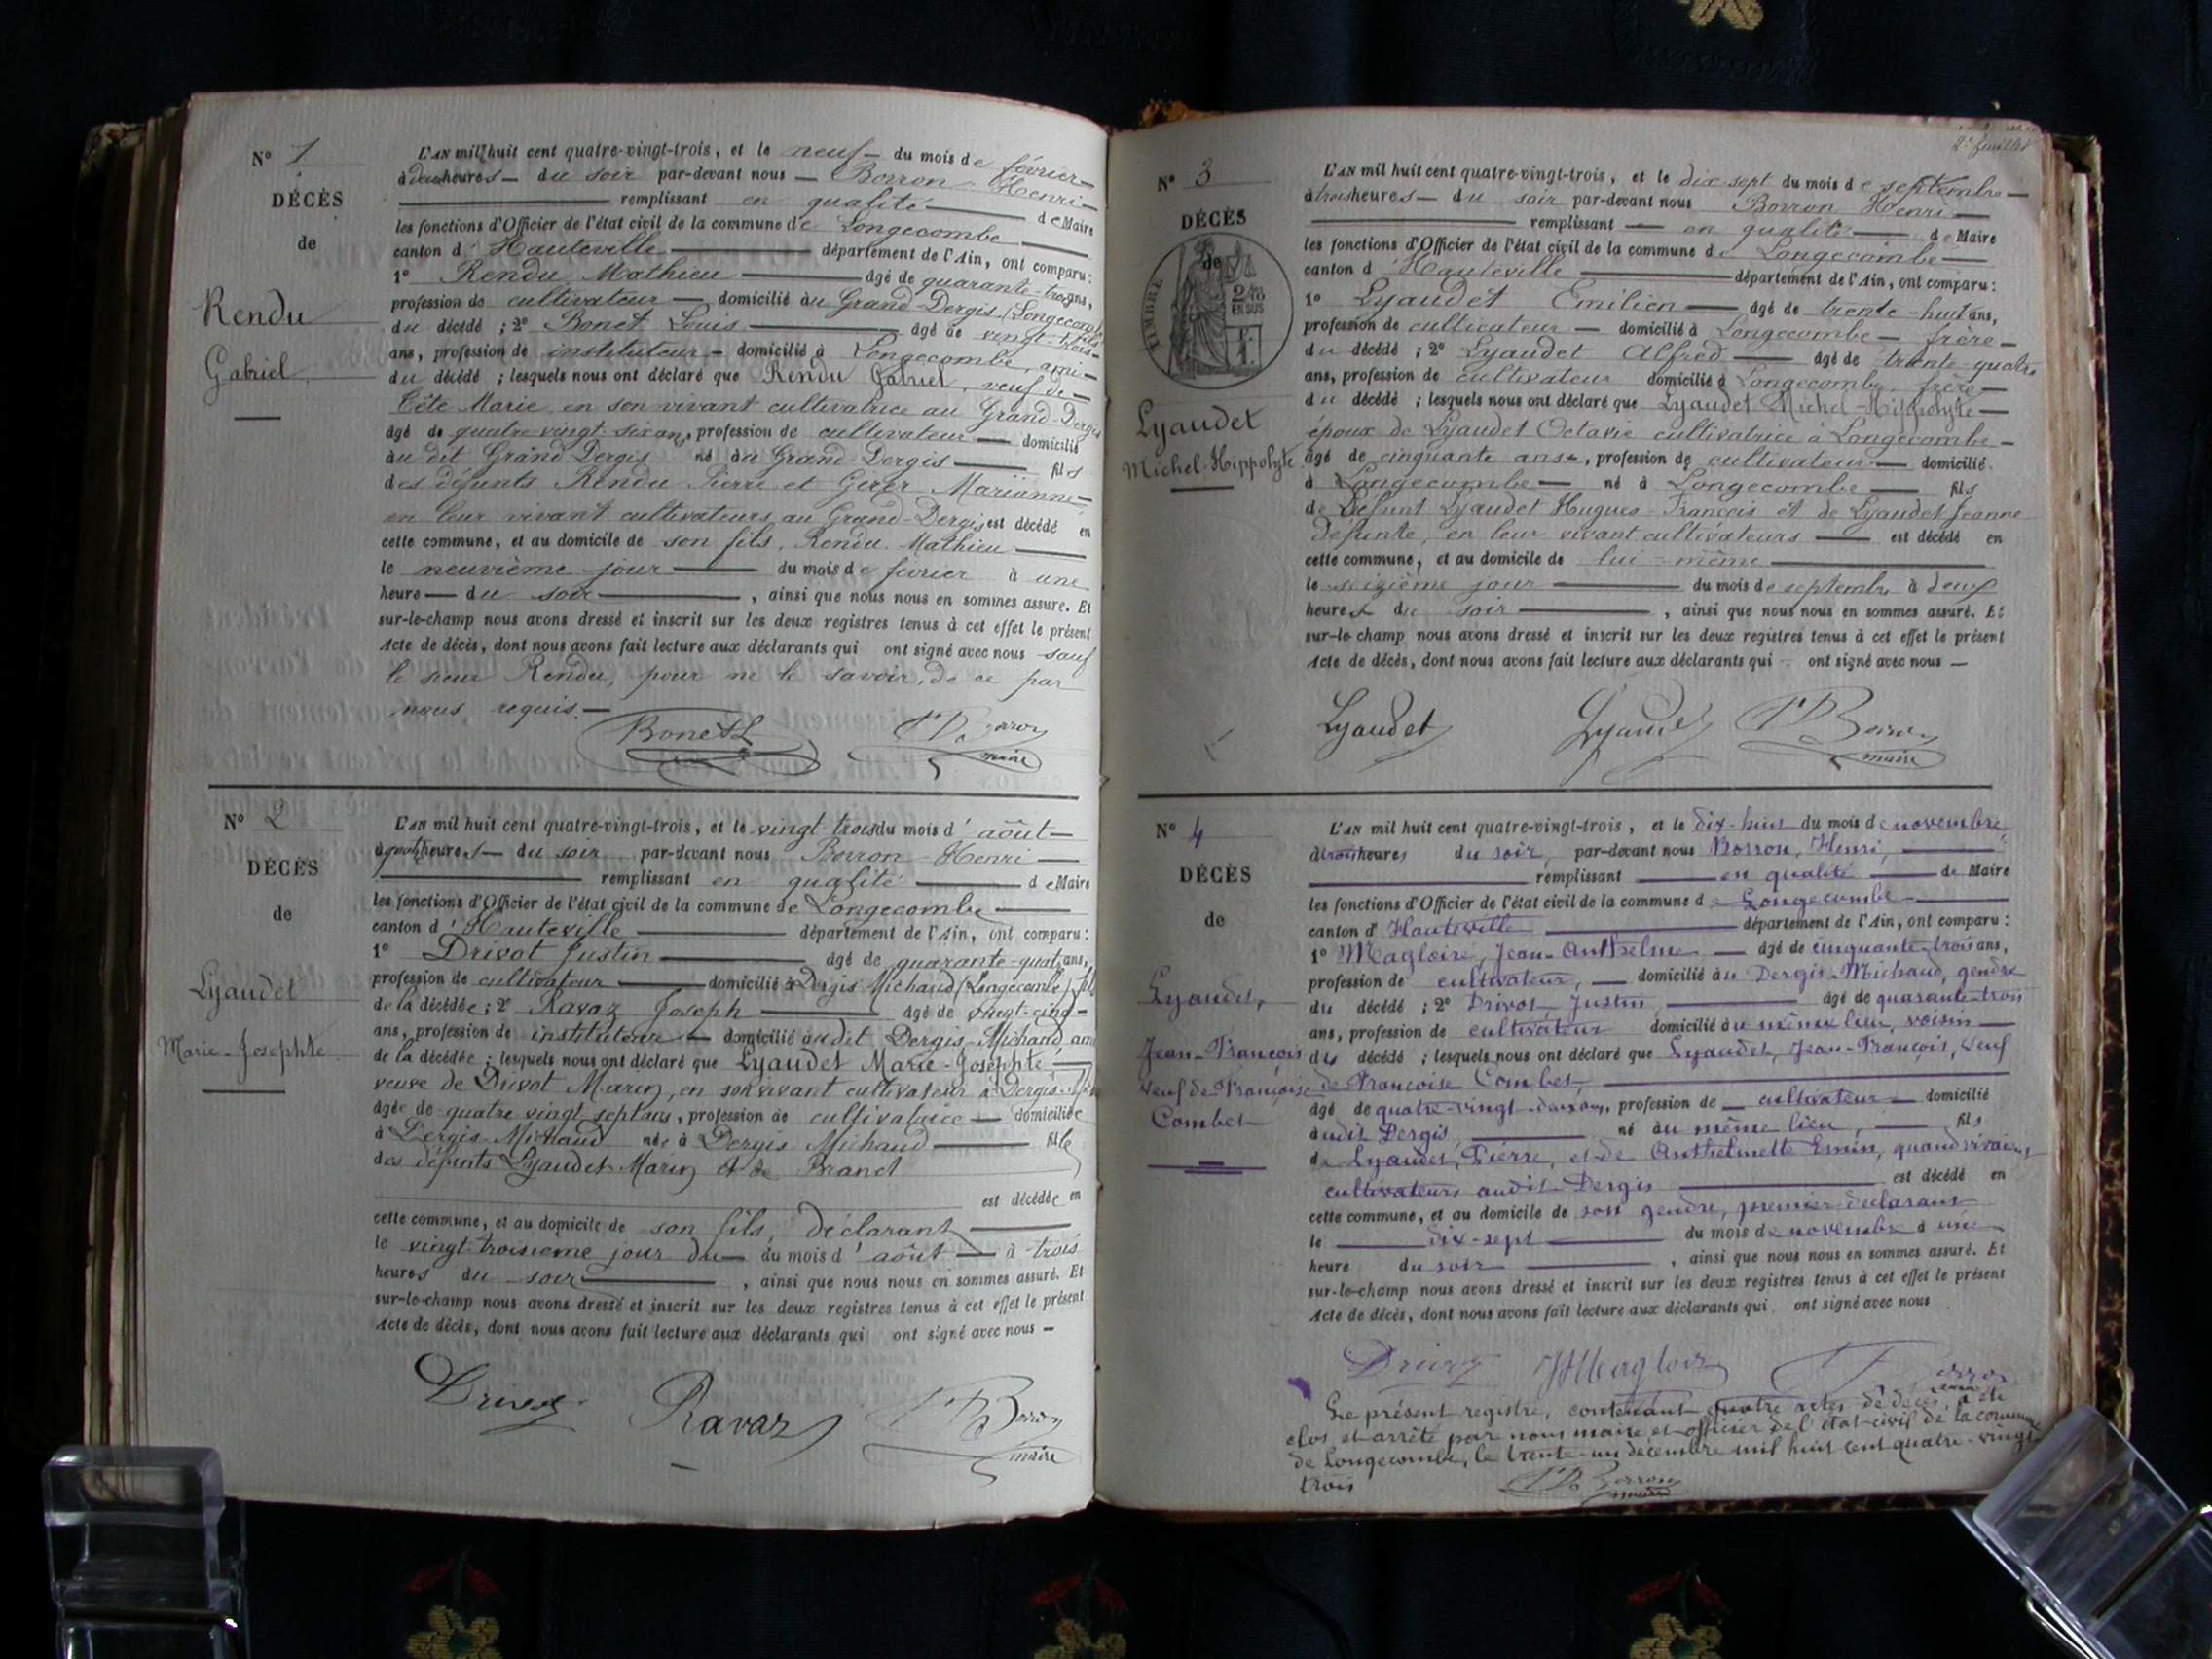 N° 1
DÉCÈS
de
Rendu
Gabriel
L'AN mil huit cent quatre-vingt-trois, et le neuf du mois de février
à deux heures du soir par-devant nous Borron Henri
remplissant en qualité de Maire
les fonctions d'Officier de l'état civil de la commune de Longecombe
canton d'Hauteville département de l'Ain, ont comparu:
1° Rendu Mathieu âgé de quarante-trois ans,
profession de cultivateur domicilié au Grand-Dergis (Longecombe) fils
du décédé; 2° Bonet Louis âgé de vingt-trois
ans, profession de instituteur domicilié à Longecombe, ami
du décédé; lesquels nous ont déclaré que Rendu Gabriel, veuf de
Tête Marie, en son vivant cultivatrice au Grand-Dergis
âgé de quatre vingt-six ans, profession de cultivateur domicilié
au dit Grand Dergis né au Grand-Dergis fils
des défunts Rendu Pierre et Marianne
en leur vivant cultivateurs au Grand-Dergis est décédé en
cette commune, et au domicile de son fils, Rendu Mathieu
le neuvième jour du mois de février à une
heure du soir, ainsi que nous nous en sommes assuré. Et
sur-le-champ nous avons dressé et inscrit sur les deux registres tenus à cet effet le présent
Acte de décès, dont nous avons fait lecture aux déclarants qui ont signé avec nous sauf
le sieur Rendu, pour ne le savoir, de ce par
nous requis.
Bonet L Borron
maire
N° 2
DÉCÈS
de
Lyaudet
Marie-Josephte
L'AN mil huit cent quatre-vingt-trois, et le vingt trois du mois d'août
à quatre heures du soir par-devant nous Borron Henri
remplissant en qualité de Maire
les fonctions d'Officier de l'état civil de la commune de Longecombe
canton d'Hauteville département de l'Ain, ont comparu:
1° Drivot Justin âgé de quarante-quatre ans,
profession de cultivateur domicilié à Dergis Michaud (Longecombe) fils
de la décédée; 2° Ravaz Joseph âgé de vingt-cinq
ans, profession de instituteur domicilié audit Dergis-Michaud, ami
de la décédée; lesquels nous ont déclaré que Lyaudet Marie-Josephte
veuve de Drivot Marin, en son vivant cultivateur à Dergis-
âgée de quatre vingt sept ans, profession de cultivatrice domiciliée
à Dergis-Michaud née à Dergis Michaud fille
des défunts Lyaudet Marin et de
est décédée en
cette commune, et au domicile de son fils, déclarant
le vingt-troisième jour du du mois d'août à trois
heures du soir, ainsi que nous nous en sommes assuré. Et
sur-le-champ nous avons dressé et inscrit sur les deux registres tenus à cet effet le présent
Acte de décès, dont nous avons fait lecture aux déclarants qui ont signé avec nous
Drivot Ravaz Borron
maire
2e feuillet
N° 3
DÉCÈS
de
TIMBRE
2/10
EN SUS
Lyaudet
Michel-Hippolyte
L'AN mil huit cent quatre-vingt-trois, et le dix-sept du mois de septembre
à trois heures du soir par-devant nous Borron Henri
remplissant en qualité de Maire
les fonctions d'Officier de l'état civil de la commune de Longecombe
canton d'Hauteville département de l'Ain, ont comparu:
1° Lyaudet Emilien âgé de trente-huit ans,
profession de cultivateur domicilié à Longecombe frère
du décédé; 2° Lyaudet Alfred âgé de trente-quatre
ans, profession de cultivateur domicilié à Longecombe frère
du décédé; lesquels nous ont déclaré que Lyaudet Michel-Hippolyte
époux de Lyaudet Octavie cultivatrice à Longecombe
âgé de cinquante ans, profession de cultivateur domicilié
à Longecombe né à Longecombe fils
de défunt Lyaudet Hugues-François et de Lyaudet Jeanne
défunte, en leur vivant cultivateurs est décédé en
cette commune, et au domicile de lui-même
le seizième jour du mois de septembre à deux
heures du soir, ainsi que nous nous en sommes assuré. Et
sur-le-champ nous avons dressé et inscrit sur les deux registres tenus à cet effet le présent
Acte de décès, dont nous avons fait lecture aux déclarants qui ont signé avec nous
Lyaudet Lyaudet Borron
maire
N° 4
DÉCÈS
de
Lyaudet,
Jean-François
veuf de Françoise
Combet
L'AN mil huit cent quatre-vingt-trois, et le dix-huit du mois de novembre
à trois heures du soir, par-devant nous Borron, Henri,
remplissant en qualité de Maire
les fonctions d'Officier de l'état civil de la commune de Longecombe
canton d'Hauteville département de l'Ain, ont comparu:
1° Magloire, Jean-Anthelme âgé de cinquante-trois ans,
profession de cultivateur, domicilié au Dergis-Michaud, gendre
du décédé; 2° Drivot Justin, âgé de quarante-trois
ans, profession de cultivateur domicilié au même lieu, voisin
du décédé; lesquels nous ont déclaré que Lyaudet, Jean-François, veuf
de Françoise Combet,
âgé de quatre-vingt-deux ans, profession de cultivateur domicilié
audit Dergis, né au même lieu, fils
de Lyaudet, Pierre, et de Anthelmette Emin, quand vivaient
cultivateurs audit Dergis est décédé en
cette commune, et au domicile de son gendre, premier déclarant
le dix-sept du mois de novembre à une
heure du soir, ainsi que nous nous en sommes assuré. Et
sur-le-champ nous avons dressé et inscrit sur les deux registres tenus à cet effet le présent
Acte de décès, dont nous avons fait lecture aux déclarants qui ont signé avec nous
Drivot Magloire Borron
Le présent registre, contenant quatre actes de décès, a été
clos et arrêté par nous maire et officier de l'état-civil de la commune
de Longecombe, le trente-un décembre mil huit cent quatre-vingt
trois
Borron
maire